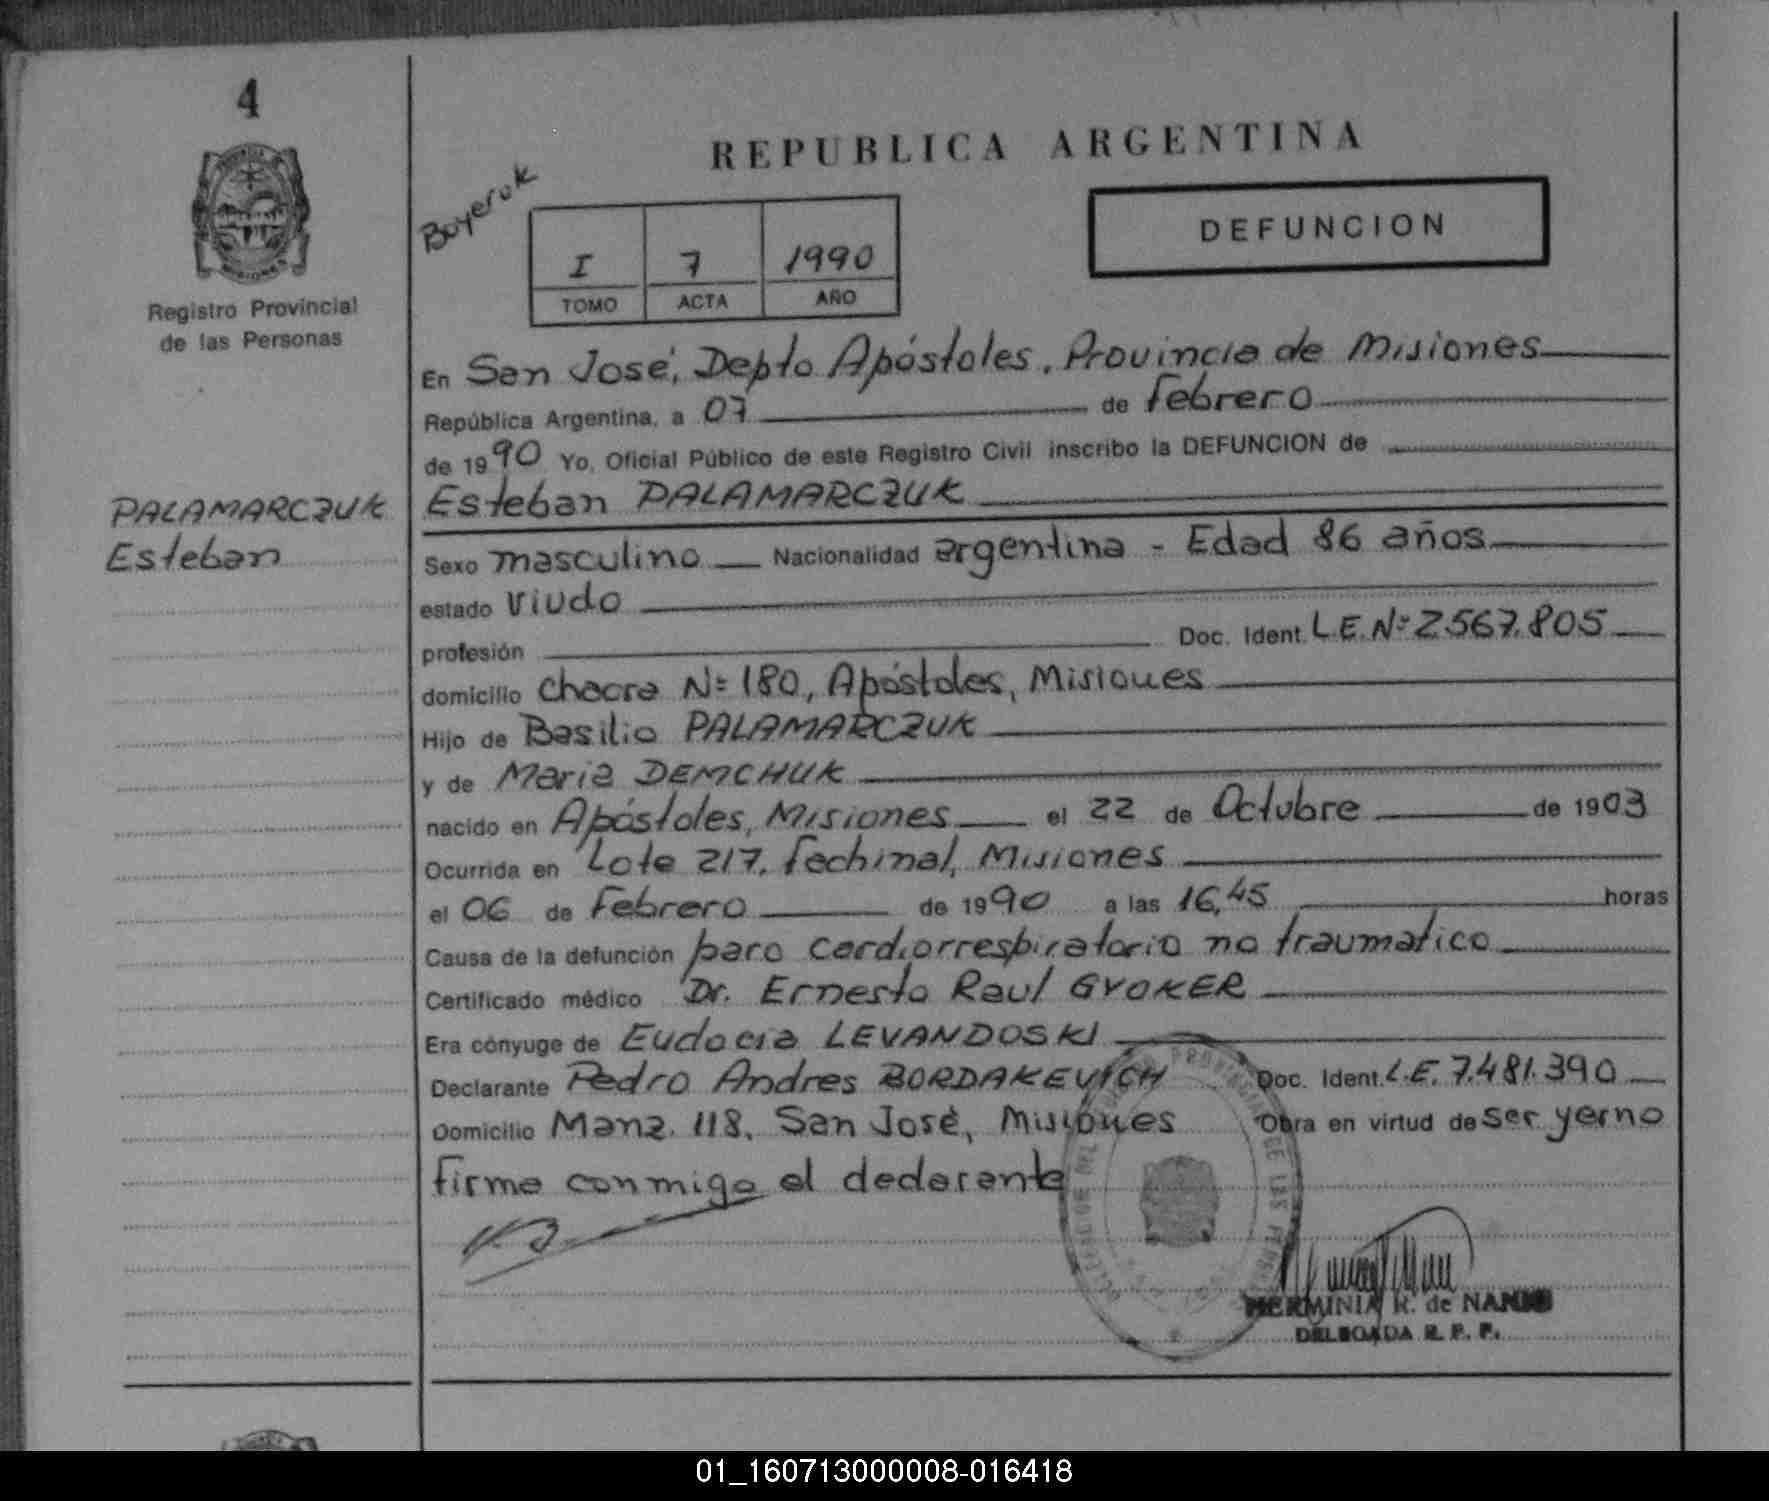 4
REPUBLICA ARGENTINA
Boyeruk
I 7 1990
TOMO ACTA AÑO
DEFUNCION
Registro Provincial
de las Personas
En San José, Depto Apóstoles, Provincia de Misiones
República Argentina, a 07 de febrero
de 1990 Yo, Oficial Público de este Registro Civil inscribo la DEFUNCION de
PALAMARCZUK
Esteban
Esteban PALAMARCZUK
Sexo masculino Nacionalidad argentina - Edad 86 años
estado viudo
profesión Doc. Ident. L.E. Nº 2567.805
domicilio Chacra Nº 180, Apóstoles, Misiones
Hijo de Basilio PALAMARCZUK
y de Maria DEMCHUK
nacido en Apóstoles, Misiones el 22 de Octubre de 1903
Ocurrida en Lote 217, fechinal, Misiones
el 06 de Febrero de 1990 a las 16,45 horas
Causa de la defunción paro cardiorrespiratorio no traumatico
Certificado médico Dr. Ernesto Raul GYOKER
Era cónyuge de Eudocia LEVANDOSKI
Declarante Pedro Andres BORDAKEVICH Doc. Ident. L.E. 7.481.390
Domicilio Manz. 118, San José, Misiones Obra en virtud de ser yerno
firma conmigo el declarante
HERMINIA R. de
DELEGADA R. P. P.
01_160713000008-016418